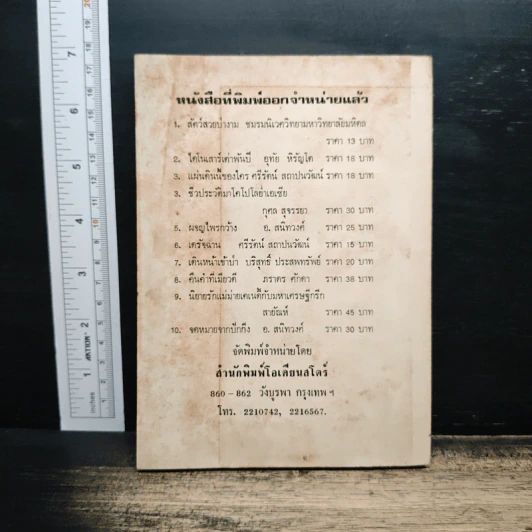 หนังสือที่พิมพ์ออกจำหน่ายแล้ว
1. สัตว์สวยป่างาม ชมรมนิเวศวิทยามหาวิทยาลัยมหิดล
ราคา 13 บาท
2. ไดโนเสาร์เต่าพันปี อุทัย หิรัญโต ราคา 18 บาท
3. แผ่นดินนี้ของใคร ศรีรัตน์ สถาปนวัฒน์ ราคา 18 บาท
3. ชีวประวัติมาโคโปโลย่ำเอเซีย
กุศล สุจรรยา ราคา 30 บาท
5. ผจญไพรกว้าง อ. สนิทวงศ์ ราคา 25 บาท
6. เดรัจฉาน ศรีรัตน์ สถาปนวัฒน์ ราคา 15 บาท
7. เดินหน้าเข้าป่า บริสุทธิ์ ประสพทรัพย์ ราคา 20 บาท
8. คืนค่ำที่เมียวดี ภราดร ศักดา ราคา 38 บาท
9. นิยายรักแม่ม่ายเคนเนดี้กับมหาเศรษฐีกรีก
สายัณห์ ราคา 45 บาท
10. จดหมายจากปักกิ่ง อ. สนิทวงศ์ ราคา 30 บาท
จัดพิมพ์จำหน่ายโดย
สำนักพิมพ์โอเดียนสโตร์
860 – 862 วังบูรพา กรุงเทพ ฯ
โทร. 2210742, 2216567.
7
6
5
4
3
2
1